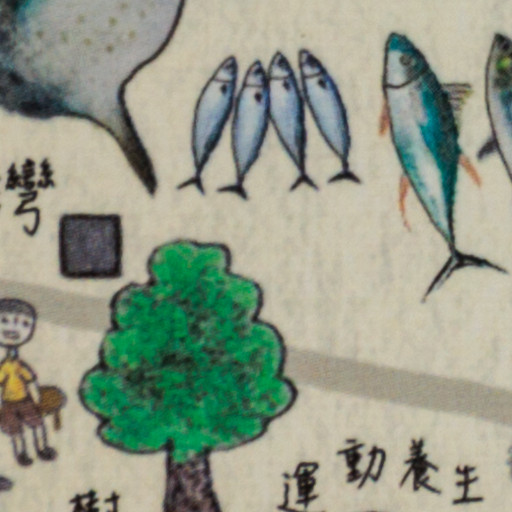 灣
運動養生
樹